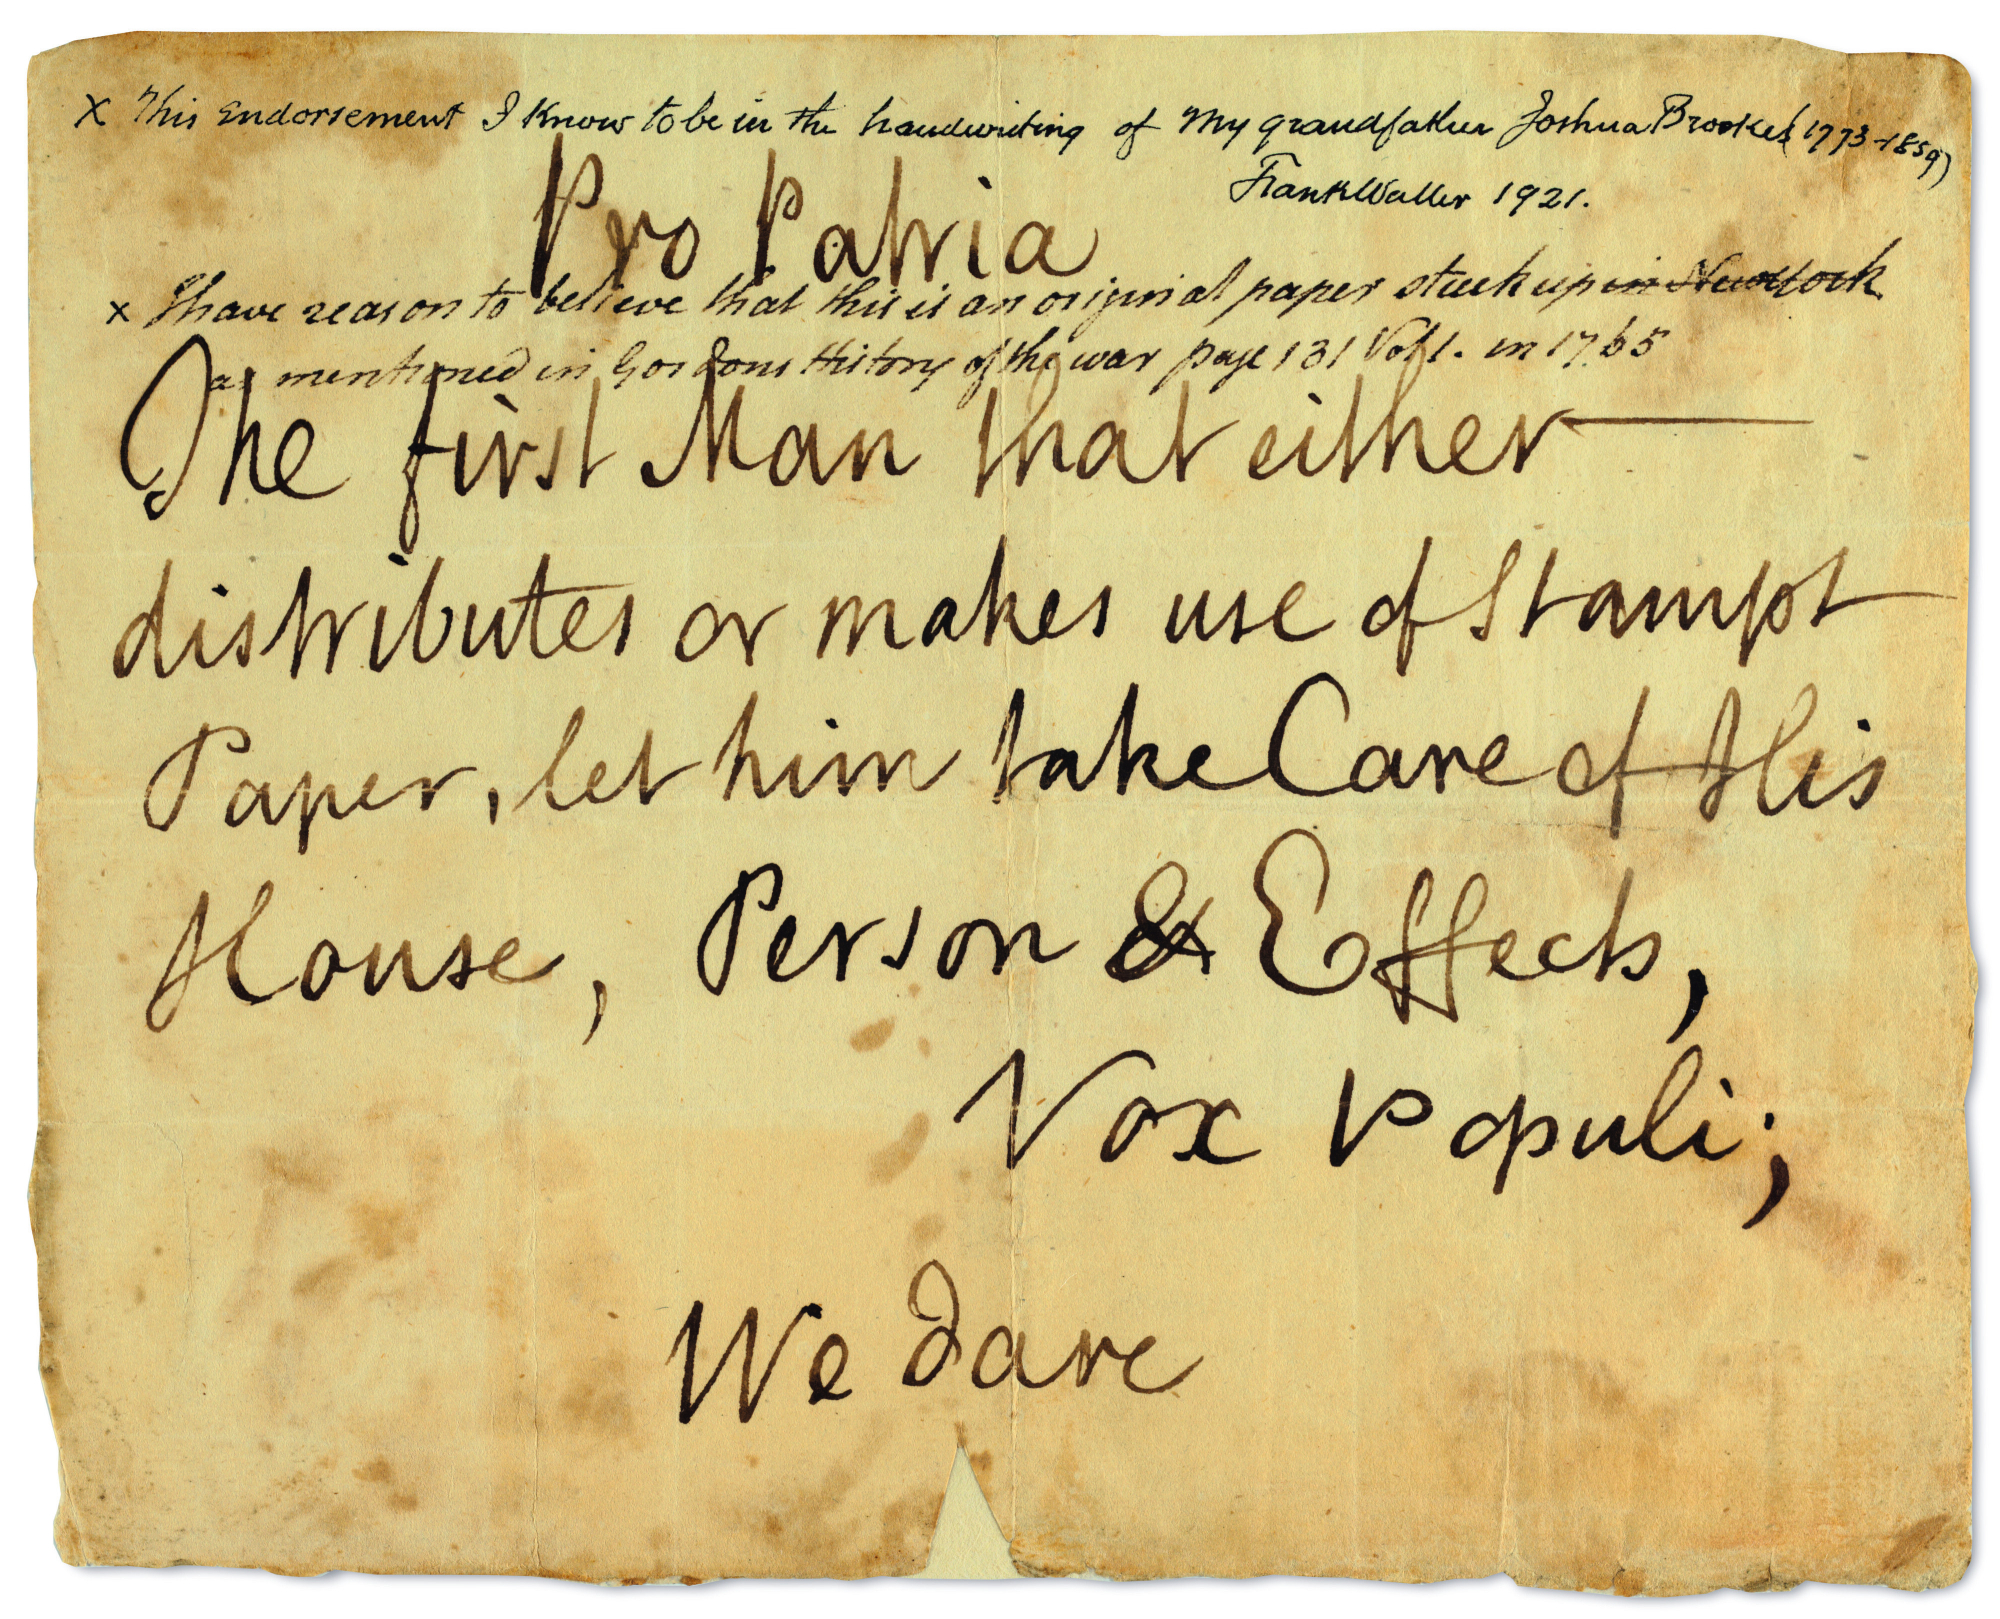 x This Endorsement I Know to be in the handwriting of My grandfather Joshua Brookes (1773-1859)
Frank Waller 1921.
Pro Patria
x I have reason to believe that this is an original paper stuck up in New York
as mentioned in Gordons History of the war page 131 Vol 1. in 1765
The first Man that either
distributes or makes use of Stampt
Paper, let him take Care of His
House, Person & Effects,
Vox Populi;
We Dare